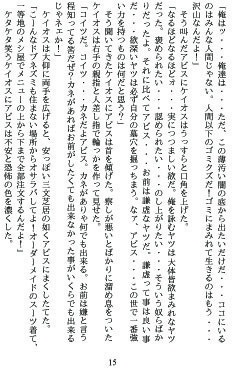 「俺はッ・・俺達は、・・ただ、この薄汚い闇の底から出たいだけだ・・・ココにいる
のはみんな人間じゃない。人間以下のゴミクズだ！ゴミにまみれて生きるのはもう・・・
沢山なんだよ！」
　そう叫んだアビスにケイオスはうっすらと口角を上げた。
「なるほどなるほどォ・・実につまらない欲だ。俺を拝むヤツは大体皆欲まみれなヤツ
だった。褒められたい・・・認められたい・・・のし上がりたい・・・そういう奴らばか
りだったよ。それに比べてアビス・・お前は謙虚なヤツだ。謙虚って事は良い事
だ・・欲深いヤツは必ず自分の墓穴を掘っちまう。なァ、アビス・・・この世で一番強
い力を持つものは何だと思う？」
　そう聞いてきたケイオスにアビスは首を傾げた。察しが悪いとばかりに溜め息をついた
ケイオスは右手の親指と人差し指で輪っかを作って見せた。
「コイツだ、コイツ・・カネだよアビス。カネがありゃ何でも出来る。お前は嫌と言う
程知ってる筈だぜ？カネがあればお前がしたくても出来なかった事がいくらでも出来る
じゃネェか！」
　ケイオスは大仰に両手を広げると、安っぽい三文芝居の如くアビスによくしたてた。
「こーんなドブネズミも住まない場所からオサラバしてよ！オーダーメイドのスーツ着て、
一等のメシ屋でメニューの上から下まで全部注文するんだよ！」
ケタケタ笑うケイオスにアビスは不安と恐怖の色を濃くした。
15